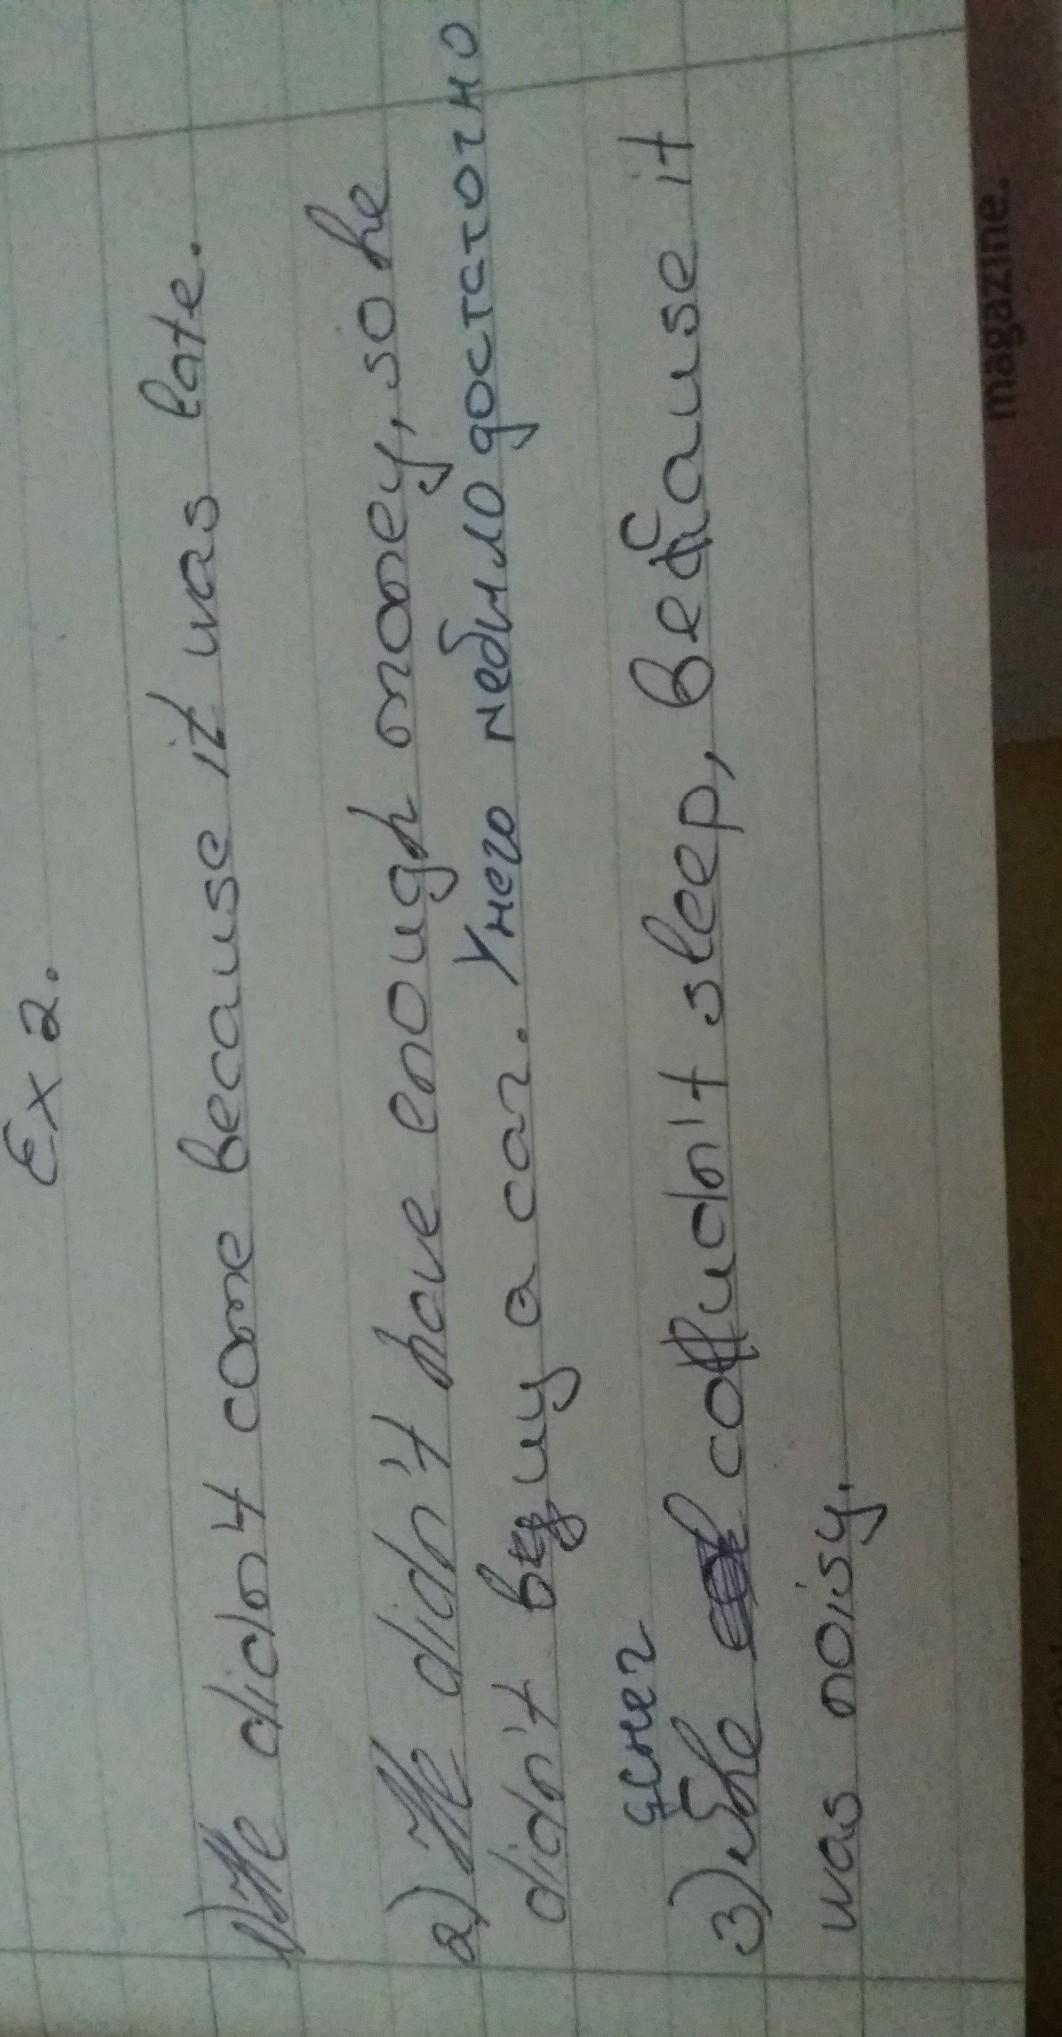 Ex 2.
1) He didn't come because it was late.
2) He didn't have enough money, so he
didn't buy a car. Унего небило достаточно
денег
3) She couldn't sleep, because it
was noisy.
magazine.